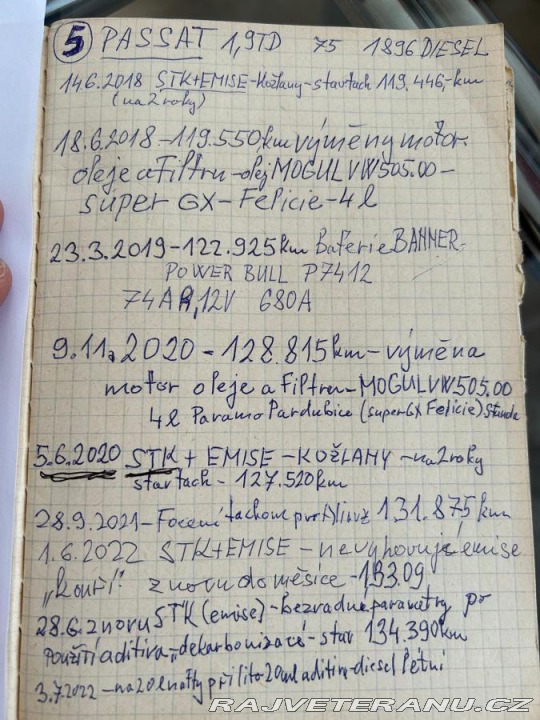 5 PASSAT 1,9TD 75 1896 DIESEL
14.6.2018 STK+EMISE-Kožlany-stavtach 119.446,-km
(na 2 roky)
18.6.2018-119.550km výměny motor.
oleje a Filtru-olej MOGUL VW505.00-
super GX-Felicie-4l
23.3.2019-122.925km Baterie BANNER-
POWER BULL P7412
74AH,12V 680A
9.11.2020-128.815km-výměna
motor oleje a Filtru-MOGUL VW505.00
4l Paramo Pardubice (super GX Felicie) Standa
5.6.2020 STK+EMISE-KOŽLANY-na 2 roky
stav tach-127.520km
28.9.2021-Focení tachom 131.875km
1.6.2022 STK+EMISE-nevyhovují emise
„kouří" znovu do měsíce-
28.6.znovu STK(emise)-bezvadné parametry po
použití aditiva„dekarbonizace-stav 134.390km
3.7.2022-na 20l nafty přilito 20ml aditiva-diesel letní
RAJVETERANU.CZ